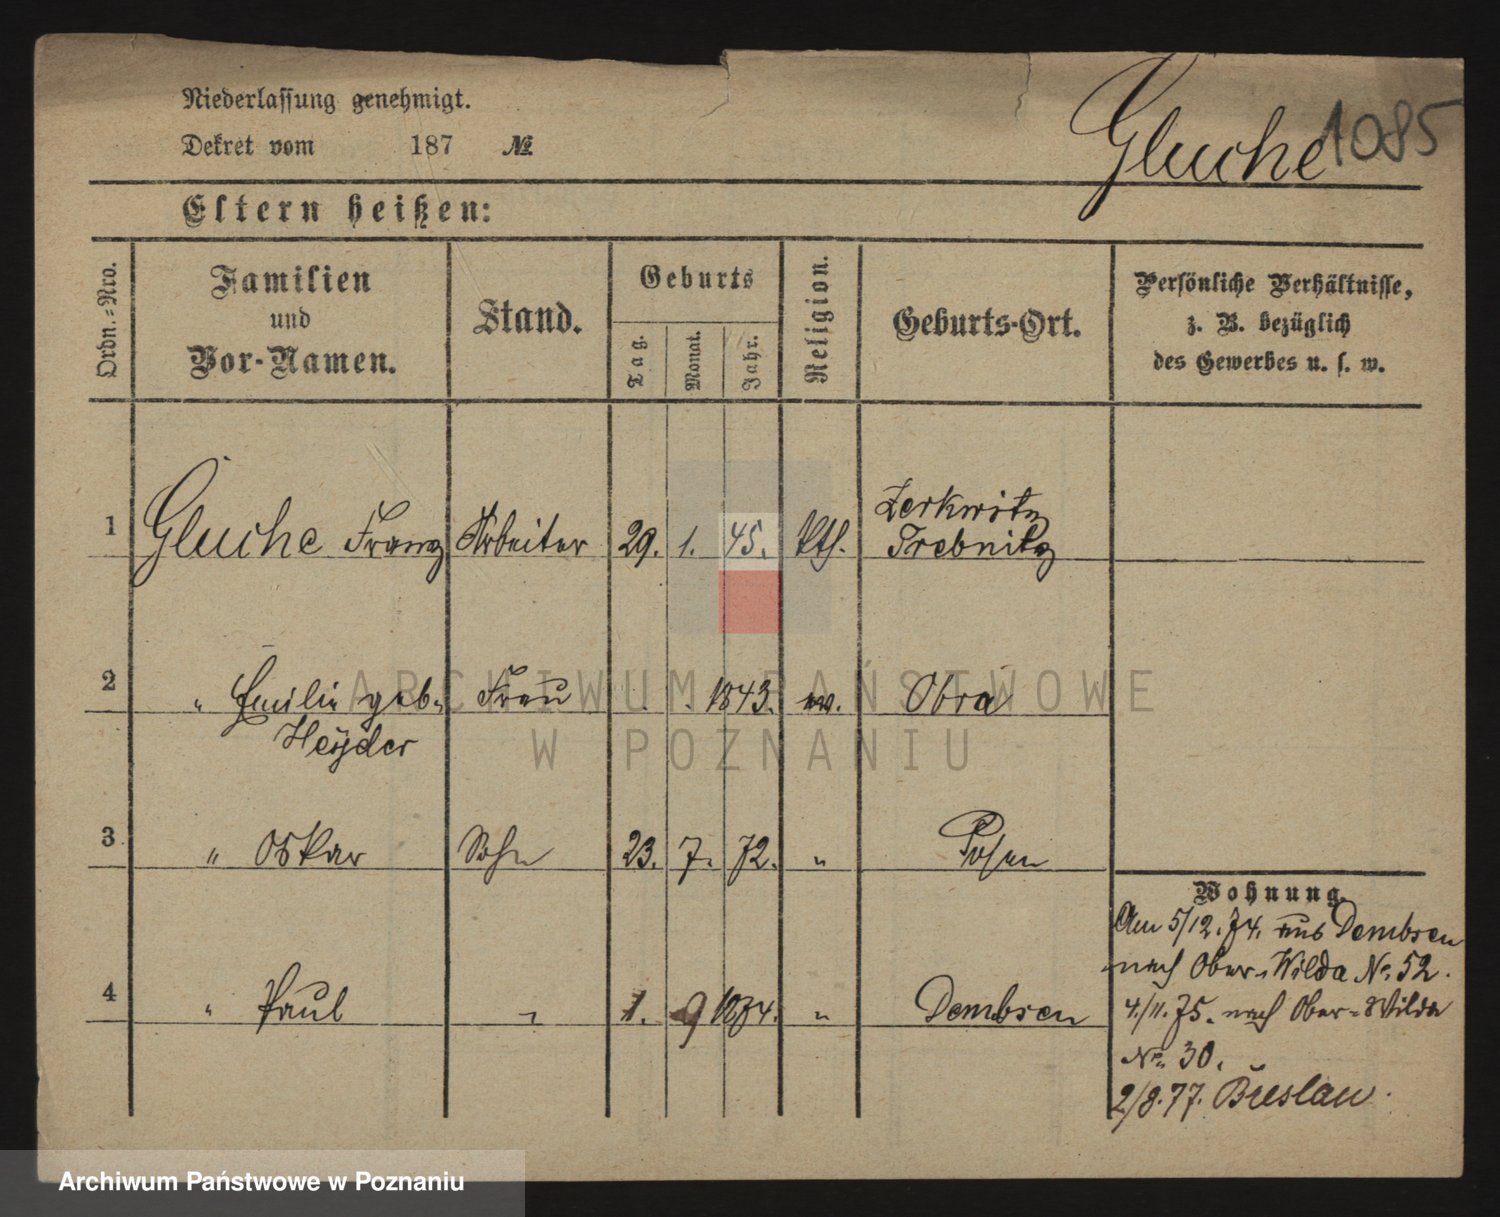 Niederlassung genehmigt.
Dekret vom 187 №
Gluche 1085
Eltern heißen:
Ordn.-Nro.
Familien
und
Vor-Namen.
Stand.
Geburts
Tag.
Monat.
Jahr.
Religion.
Geburts-Ort.
Persönliche Verhältnisse,
z. B. bezüglich
des Gewerbes u. s. w.
1 Gluche Franz Arbeiter 29. 1. 45. kth. Zerkwitz
Trebnitz
2 " Emilie geb. Frau 1843. ev. Obra
Heyder
3 " Oskar Sohn 23. 7. 72. " Posen
4 " Paul " 1. 9 1874. " Dembsen
Wohnung.
Am 5/12. 74. aus Dembsen
nach Ober-Wilda No. 52.
4./11. 75. nach Ober-Wilda
No. 30.
2/8. 77. Breslau.
ARCHIWUM PAŃSTWOWE
W POZNANIU
Archiwum Państwowe w Poznaniu